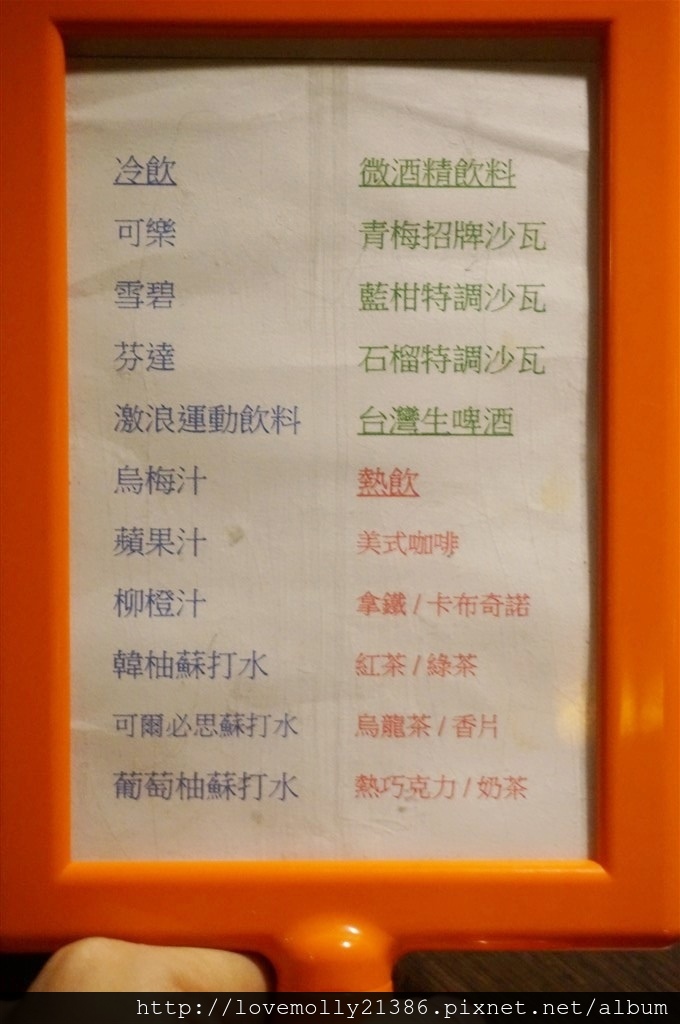 冷飲
可樂
雪碧
芬達
激浪運動飲料
烏梅汁
蘋果汁
柳橙汁
韓柚蘇打水
可爾必思蘇打水
葡萄柚蘇打水
微酒精飲料
青梅招牌沙瓦
藍柑特調沙瓦
石榴特調沙瓦
台灣生啤酒
熱飲
美式咖啡
拿鐵 / 卡布奇諾
紅茶 / 綠茶
烏龍茶 / 香片
熱巧克力 / 奶茶
http://lovemolly21386.pixnet.net/album